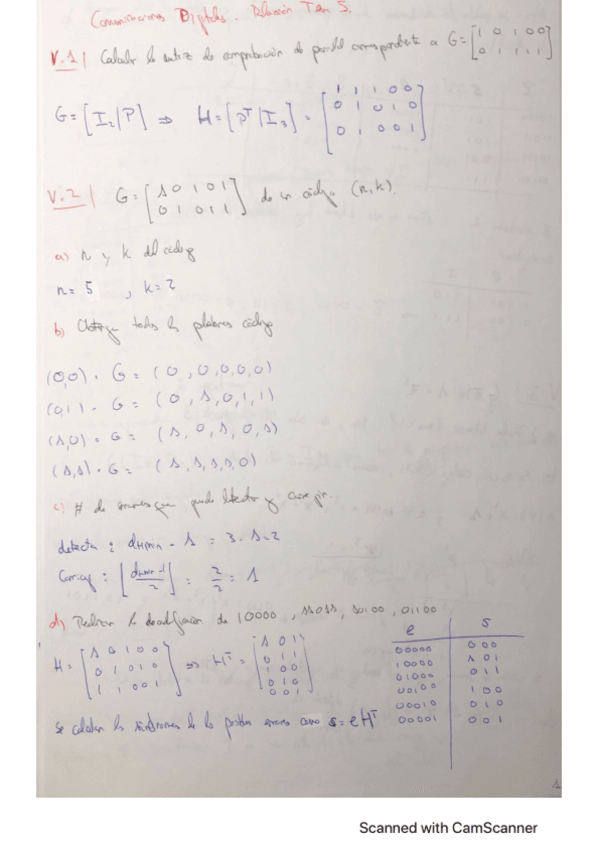 Comunicaciones Digitales. Relación Tema 5.
V.1 | Calcular la matriz de comprobación de paridad correspondiente a G = [1 0 1 0 0
0 1 1 1 1]
G = [I₂|P] ⇒ H = [Pᵀ|I₃] = [1 1 1 0 0
0 1 0 1 0
0 1 0 0 1]
V.2 | G = [1 0 1 0 1
0 1 0 1 1] de un código (n,k)
a) n y k del código
n = 5 , k = 2
b) Obtenga todas las palabras código
(0,0) · G = (0, 0, 0, 0, 0)
(0,1) · G = (0, 1, 0, 1, 1)
(1,0) = G = (1, 0, 1, 0, 1)
(1,1) · G = (1, 1, 1, 1, 0)
c) # de errores que puede detectar y corregir.
detecta : dHmin - 1 = 3 - 1 = 2
Corrige : ⌊dHmin - 1 / 2⌋ = 2/2 = 1
d) Realizar la decodificación de 10000, 11011, 10100, 01100
H = [1 0 1 0 0
0 1 0 1 0
1 1 0 0 1] ⇒ Hᵀ = [1 0 1
0 1 1
1 0 0
0 1 0
0 0 1]
e s
00000 000
10000 101
01000 011
00100 100
00010 010
00001 001
Se calculan los síndromes de los posibles errores como s = eHᵀ
1
Scanned with CamScanner